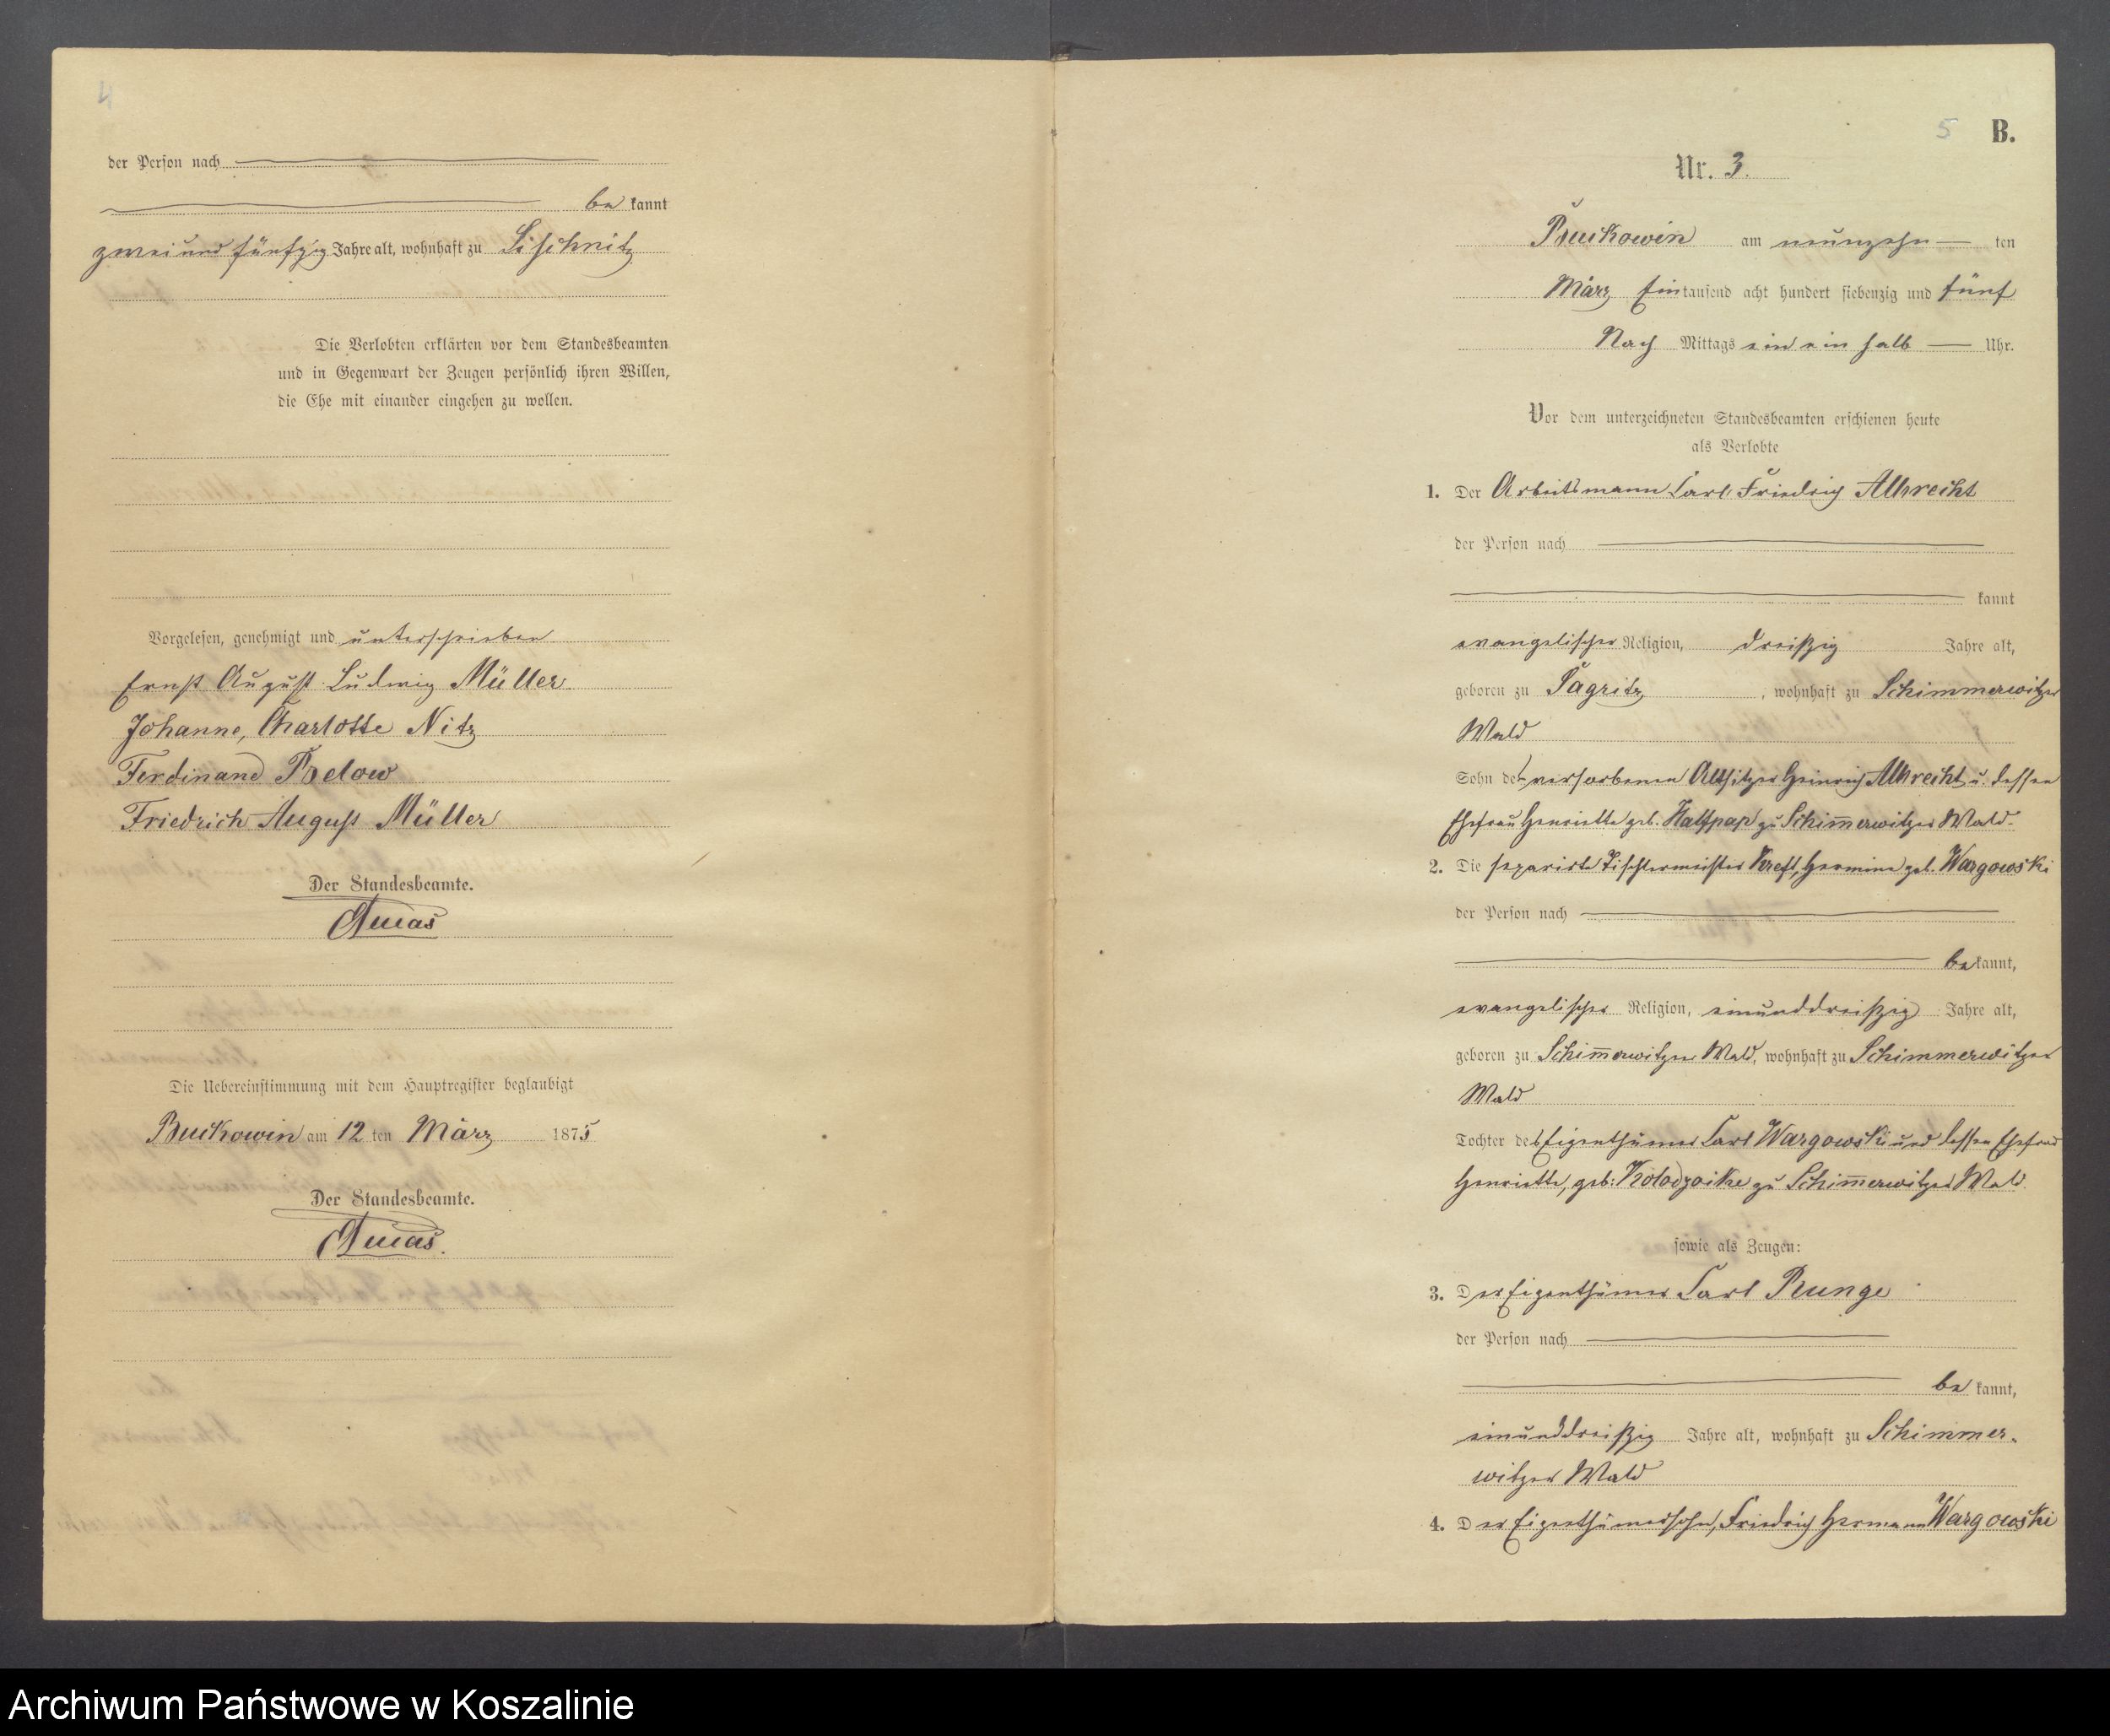 4
der Person nach
be kannt
zwei und fünfzig Jahre alt, wohnhaft zu Lischnitz
Die Verlobten erklärten vor dem Standesbeamten
und in Gegenwart der Zeugen persönlich ihren Willen,
die Ehe mit einander eingehen zu wollen.
Vorgelesen, genehmigt und unterschrieben
Ernst August Ludwig Müller
Johanne, Charlotte Nitz
Ferdinand Below
Friedrich August Müller
Der Standesbeamte.
Die Uebereinstimmung mit dem Hauptregister beglaubigt
Buckowin am 12 ten März 1875
Der Standesbeamte.
5 B.
Nr. 3.
Buckowin am neunzehn ten
März Eintausend acht hundert siebenzig und fünf
Nach Mittags ein ein halb Uhr.
Vor dem unterzeichneten Standesbeamten erschienen heute
als Verlobte
1. Der Arbeitsmann Carl Friedrich Albrecht
der Person nach
kannt
evangelischer Religion, dreißig Jahre alt,
geboren zu Pagritz, wohnhaft zu Schimmerwitzer
Wald
Sohn des verstorbenen Altsitzer Heinrich Albrecht u. dessen
Ehefrau Henriette geb. Halfpap zu Schim̄erwitzer Wald.
2. Die separirte Tischlermeister Kreft, Hermine geb. Wargowski
der Person nach
be kannt,
evangelischer Religion, einunddreißig Jahre alt,
geboren zu Schim̄erwitzer Wald, wohnhaft zu Schimmerwitzer
Wald
Tochter des Eigenthümer Carl Wargowski und dessen Ehefrau
Henriette, geb: Kolodzoike zu Schim̄erwitzer Wald.
sowie als Zeugen:
3. Der Eigenthümer Carl Runge
der Person nach
be kannt,
einunddreißig Jahre alt, wohnhaft zu Schimmer-
witzer Wald
4. Der Eigenthümersohn, Friedrich Hermann Wargowski
Archiwum Państwowe w Koszalinie